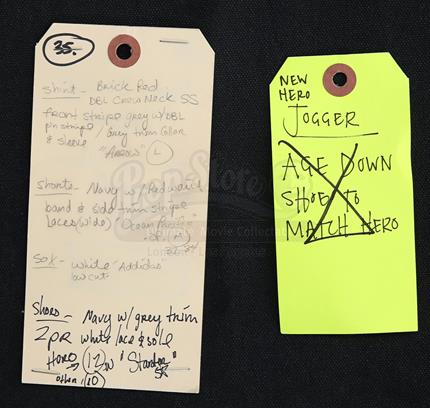 35.
Shirt - Brick Red
DBL Crew Neck SS
front stripe grey w/DBL
pin stripe / Grey trim Collar
& sleeve
"Arrow" L
Shorts - Navy w/ Red waist
band & side thin stripe
laces (wide) "Ocean Pacific"
Sox - White "Addidas"
low cut
Shoes - Navy w/ grey trim
2pr white lace & sole
HERO → (12)
other (10)
NEW
HERO
JOGGER
AGE DOWN
SHOE TO
MATCH HERO
Prop Store
Movie Collect